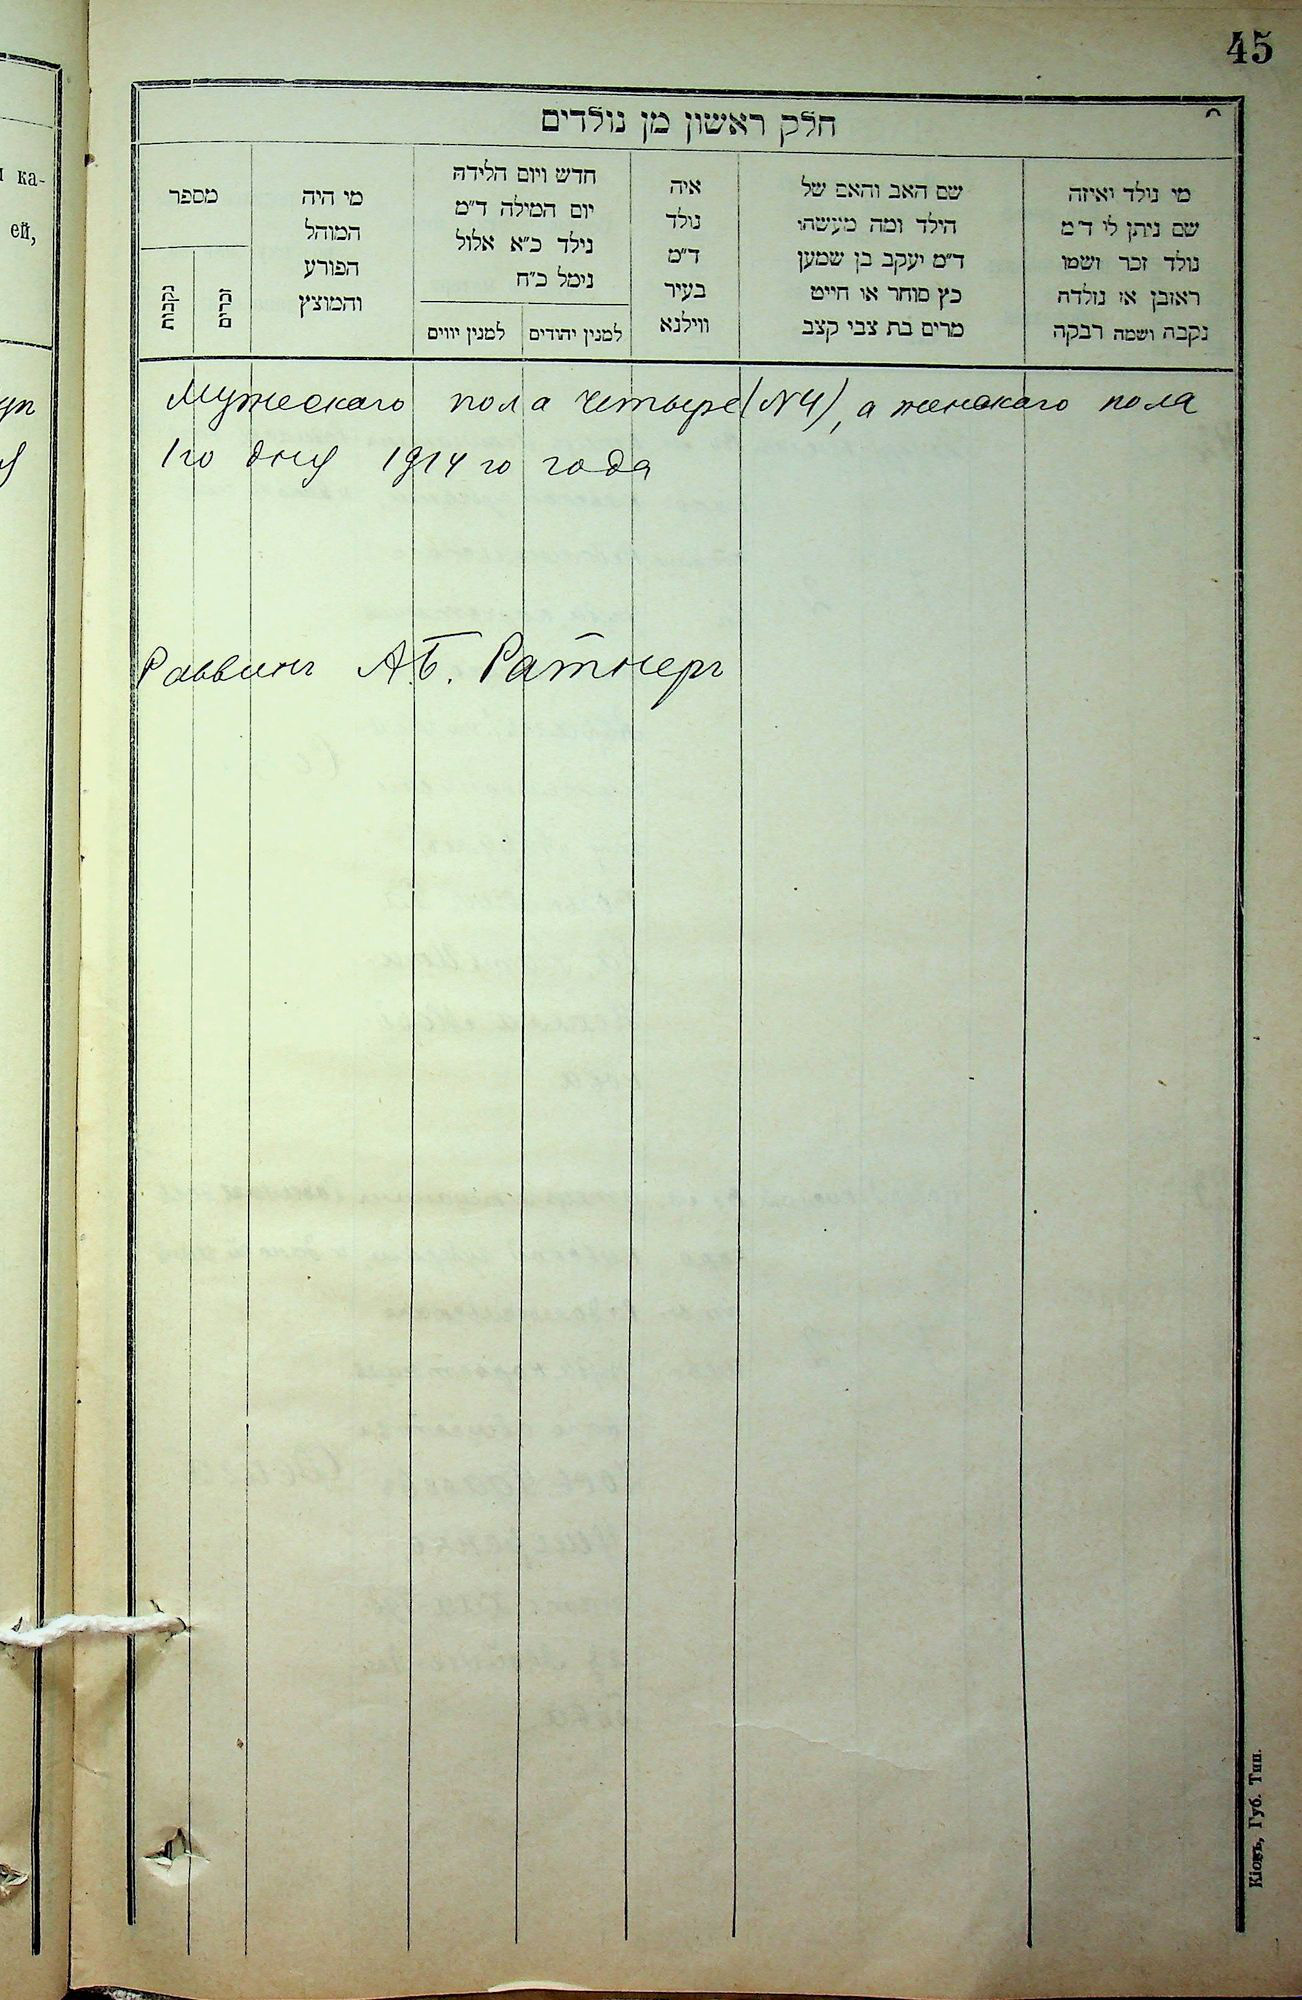 45
חלק ראשון מן נולדים
מי נילד ואיזה
שם ניתן לי ד״מ
נולד זכר ושמו
ראובן או נולדה
נקבה ושמה רבקה
שם האב והאם של
הילד ומה מעשהו
ד״מ יעקב בן שמעון
כץ סוחר או חייט
מרים בת צבי קצב
איה
נולד
ד״מ
בעיר
ווילנא
חדש ויום הלידה
יום המילה ד״מ
נילד כ״א אלול
נימל כ״ח
למנין יהודים
למנין יווים
מי היה
המוהל
הפורע
והמוצץ
מספר
זכרים
נקבות
Мужескаго пола четыре (N4), а женскаго пола
1го дня 1914го года
Раввинъ А.Б. Ратнеръ
Кіевъ, Губ. Тип.
ка-
ей,